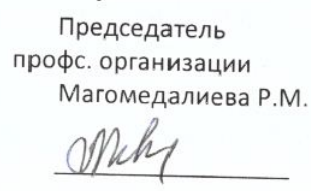 Председатель
профс. организации
Магомедалиева Р.М.